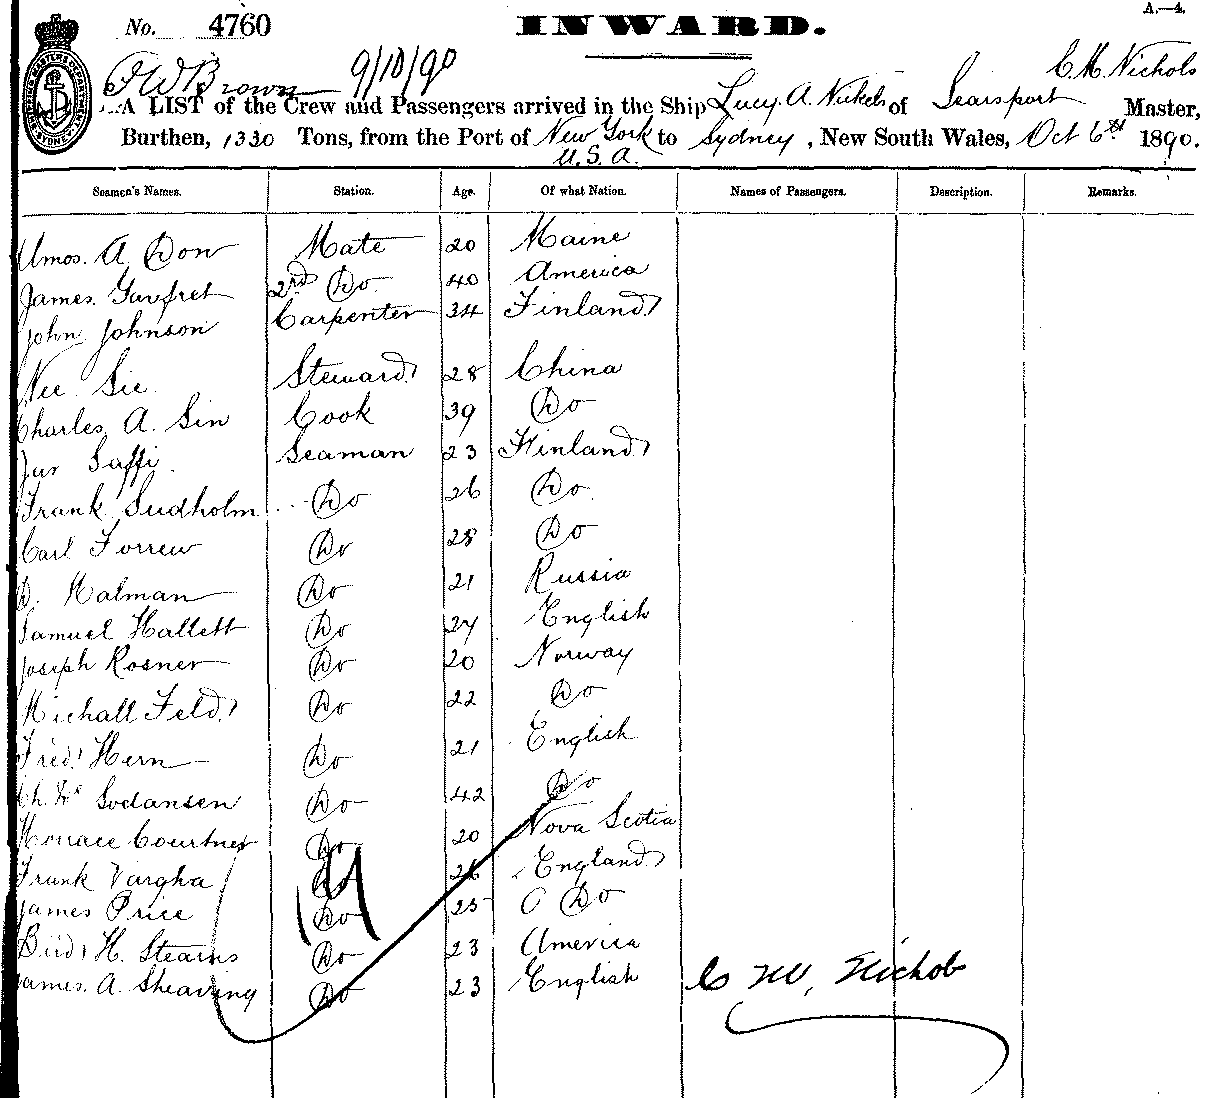 No. 4760 INWARD. A.—4.
F W Brown 9/10/90 C. M. Nichols
A LIST of the Crew and Passengers arrived in the Ship Lucy. A. Nickels of Searsport Master,
Burthen, 1330 Tons, from the Port of New York to Sydney, New South Wales, Oct 6th 1890.
U. S. A.
Seamen's Names. Station. Age. Of what Nation. Names of Passengers. Description. Remarks.
Amos. A. Dow Mate 20 Maine
James 2nd Do 40 America
John Johnson Carpenter 34 Finland
Nee Sie Steward 28 China
Charles A. Sin Cook 39 Do
Saffi. Seaman 23 Finland
Frank Sudholm Do 26 Do
Carl Do 28 Do
D. Malman Do 21 Russia
Samuel Hallett Do 27 English
Joseph Rosner Do 20 Norway
Michall Feld Do 22 Do
Fred Hern Do 21 English
Do 42 Do
Horrace Courtney Do 20 Nova Scotia
Frank Vargha Do 26 England
James Price Do 25 Do
Bird H. Stearns Do 23 America
James. A. Shearing Do 23 English C M. Nichols
19